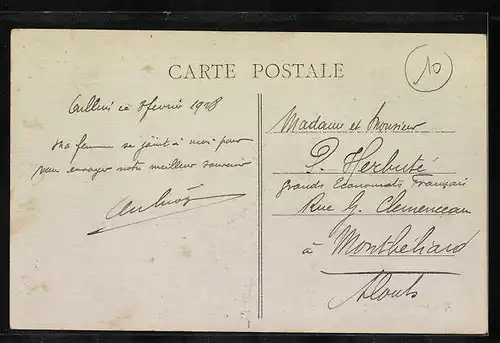 CARTE POSTALE
10
ce 8 février 1928
Ma femme se joint à moi pour
vous envoyer notre meilleur souvenir
Madame et Monsieur
P. Herbuté
Grands Economats Français
Rue G. Clemenceau
à Montbéliard
Doubs